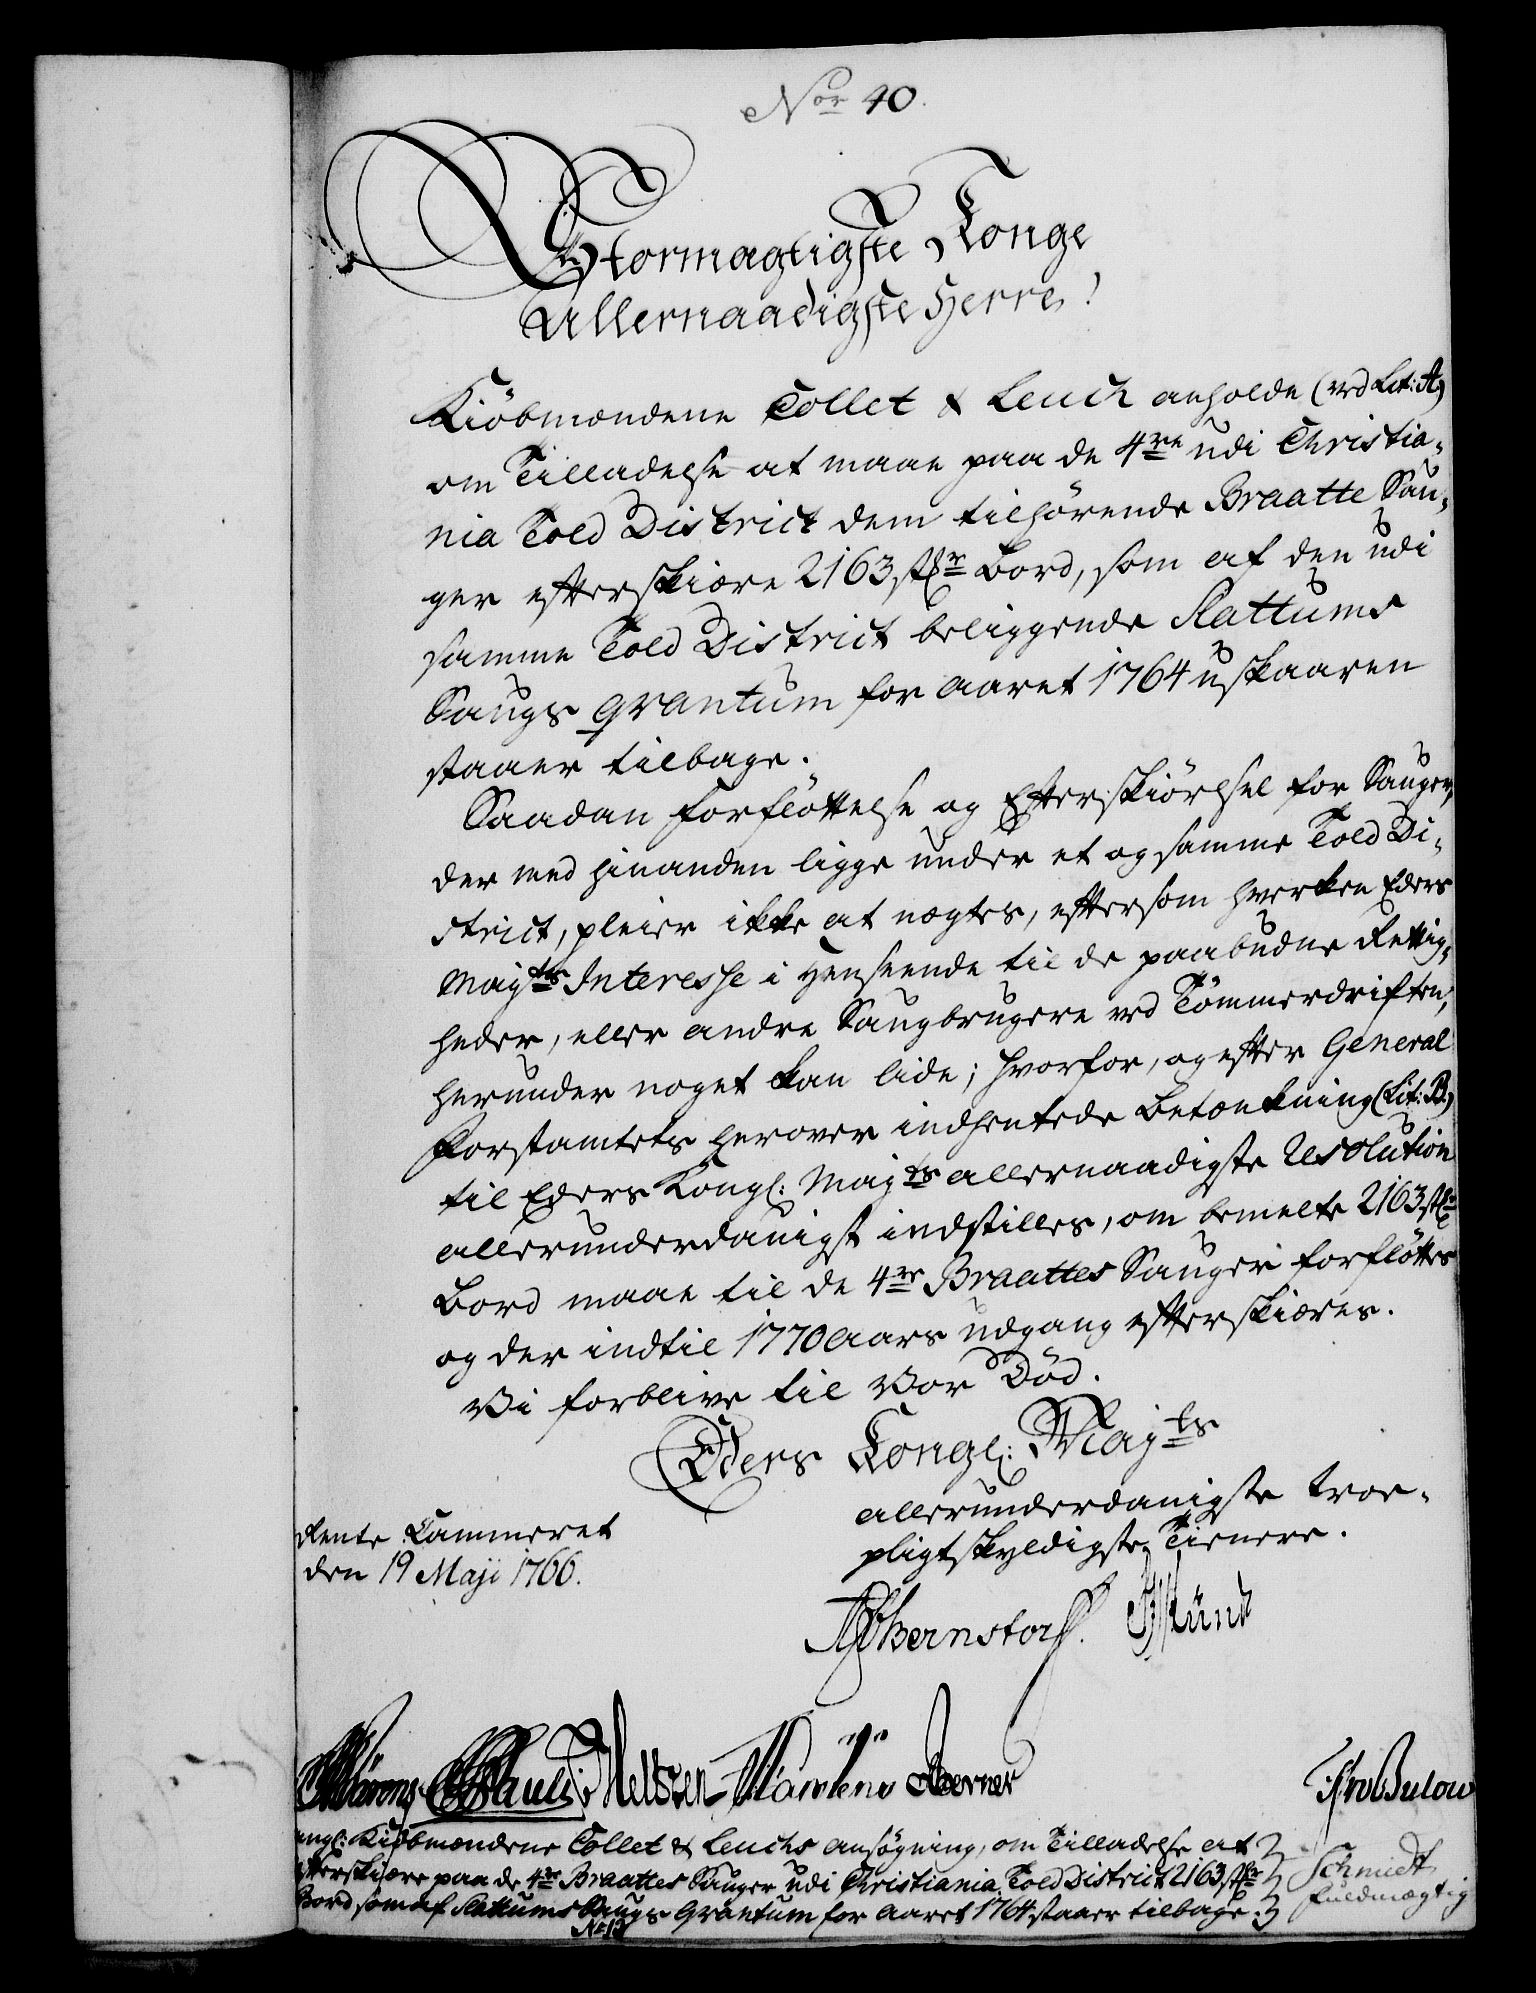 Nor 40.
Stormægtigste Konge
Allernaadigste Herre!
Kiöbmændene Collet & Leuch anholde (ved Lit: A)
om Tilladelse at maae paa de 4re udi Christia-
nia Told District dem tilhørende Braatte Sau-
ger efterskiære 2163 stkr Bord, som af den udi
samme Told District beliggende Slattums
Saugs qvantum for Aaret 1764 uskaaren
staaer tilbage.
Saadan Forfløttelse og Efterskiørsel for Sauger,
der med hinanden ligge under et og samme Told Di-
strict, pleier ikke at nægtes, eftersom hverken Eders
Mayts Interesse i Henseende til de paabudne Rettig-
heder, eller andre Saugbrugere ved Tømmerdriften,
herunder noget kan lide; hvorfor, og efter General
Forstamtets herover indhentede Betænkning (Lit: B.)
til Eders Kongl: Mayts allernaadigste Resolution
allerunderdanigst indstilles, om bemelte 2163 stkr
Bord maae til de 4re Braattes Sauger forfløttes
og der indtil 1770 Aars Udgang efterskiæres.
Vi forblive til Vor Død.
Eders Kongl: Mayts
allerunderdanigste troe-
pligtskyldigste Tienere.
Rente Cammeret
den 19 Maji 1766.
APBernstorff.
Pauli Meltzen Berner
Bulow
angl: Kiöbmændene Collet & Leuchs Ansøgning, om Tilladelse at
efterskiære paa de 4re Braattes Sauger udi Christiania Told District 2163 stkr
Bord som af Slattums Saugs qvantum for Aaret 1764 staaer tilbage.
Schmidt
fuldmægtig
No 13